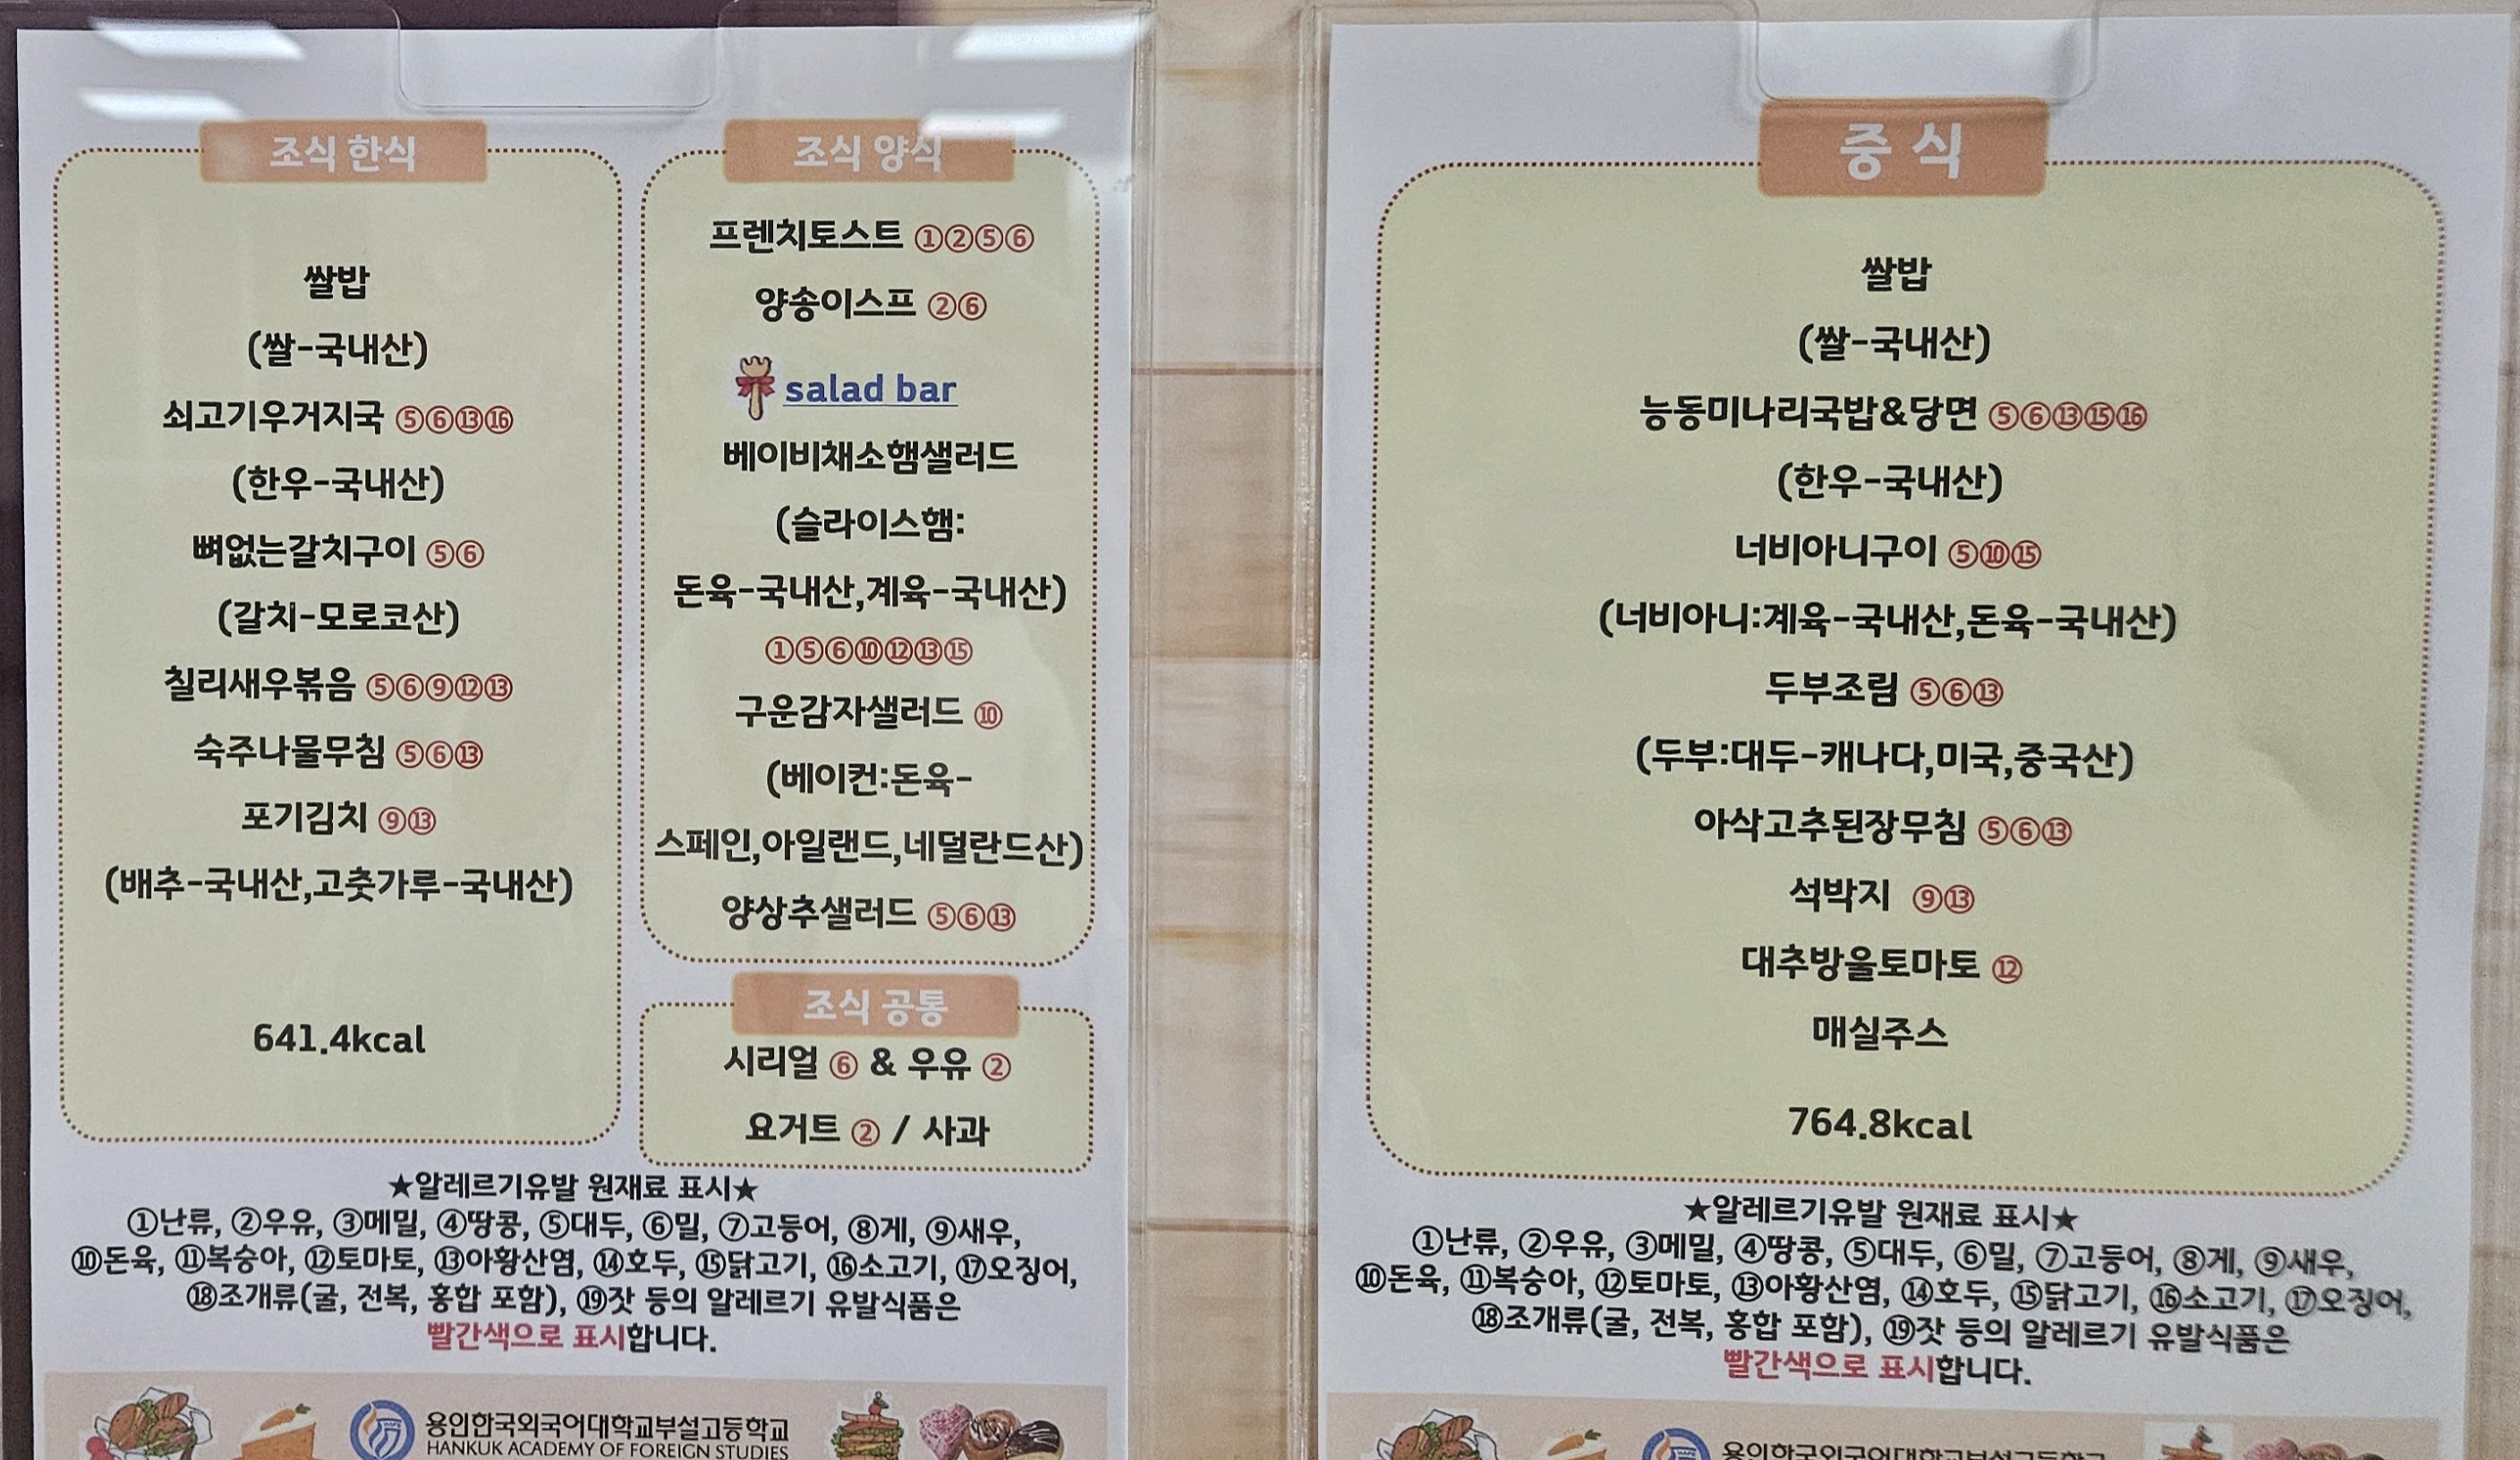 조식 한식
쌀밥
(쌀-국내산)
쇠고기우거지국 ⑤⑥⑬⑯
(한우-국내산)
뼈없는갈치구이 ⑤⑥
(갈치-모로코산)
칠리새우볶음 ⑤⑥⑨⑫⑬
숙주나물무침 ⑤⑥⑬
포기김치 ⑨⑬
(배추-국내산,고춧가루-국내산)
641.4kcal
조식 양식
프렌치토스트 ①②⑤⑥
양송이스프 ②⑥
salad bar
베이비채소햄샐러드
(슬라이스햄:
돈육-국내산,계육-국내산)
①⑤⑥⑩⑫⑬⑮
구운감자샐러드 ⑩
(베이컨:돈육-
스페인,아일랜드,네덜란드산)
양상추샐러드 ⑤⑥⑬
조식 공통
시리얼 ⑥ & 우유 ②
요거트 ② / 사과
★알레르기유발 원재료 표시★
①난류, ②우유, ③메밀, ④땅콩, ⑤대두, ⑥밀, ⑦고등어, ⑧게, ⑨새우,
⑩돈육, ⑪복숭아, ⑫토마토, ⑬아황산염, ⑭호두, ⑮닭고기, ⑯소고기, ⑰오징어,
⑱조개류(굴, 전복, 홍합 포함), ⑲잣 등의 알레르기 유발식품은
빨간색으로 표시합니다.
용인한국외국어대학교부설고등학교
HANKUK ACADEMY OF FOREIGN STUDIES
중 식
쌀밥
(쌀-국내산)
능동미나리국밥&당면 ⑤⑥⑬⑮⑯
(한우-국내산)
너비아니구이 ⑤⑩⑮
(너비아니:계육-국내산,돈육-국내산)
두부조림 ⑤⑥⑬
(두부:대두-캐나다,미국,중국산)
아삭고추된장무침 ⑤⑥⑬
석박지 ⑨⑬
대추방울토마토 ⑫
매실주스
764.8kcal
★알레르기유발 원재료 표시★
①난류, ②우유, ③메밀, ④땅콩, ⑤대두, ⑥밀, ⑦고등어, ⑧게, ⑨새우,
⑩돈육, ⑪복숭아, ⑫토마토, ⑬아황산염, ⑭호두, ⑮닭고기, ⑯소고기, ⑰오징어,
⑱조개류(굴, 전복, 홍합 포함), ⑲잣 등의 알레르기 유발식품은
빨간색으로 표시합니다.
용인한국외국어대학교부설고등학교